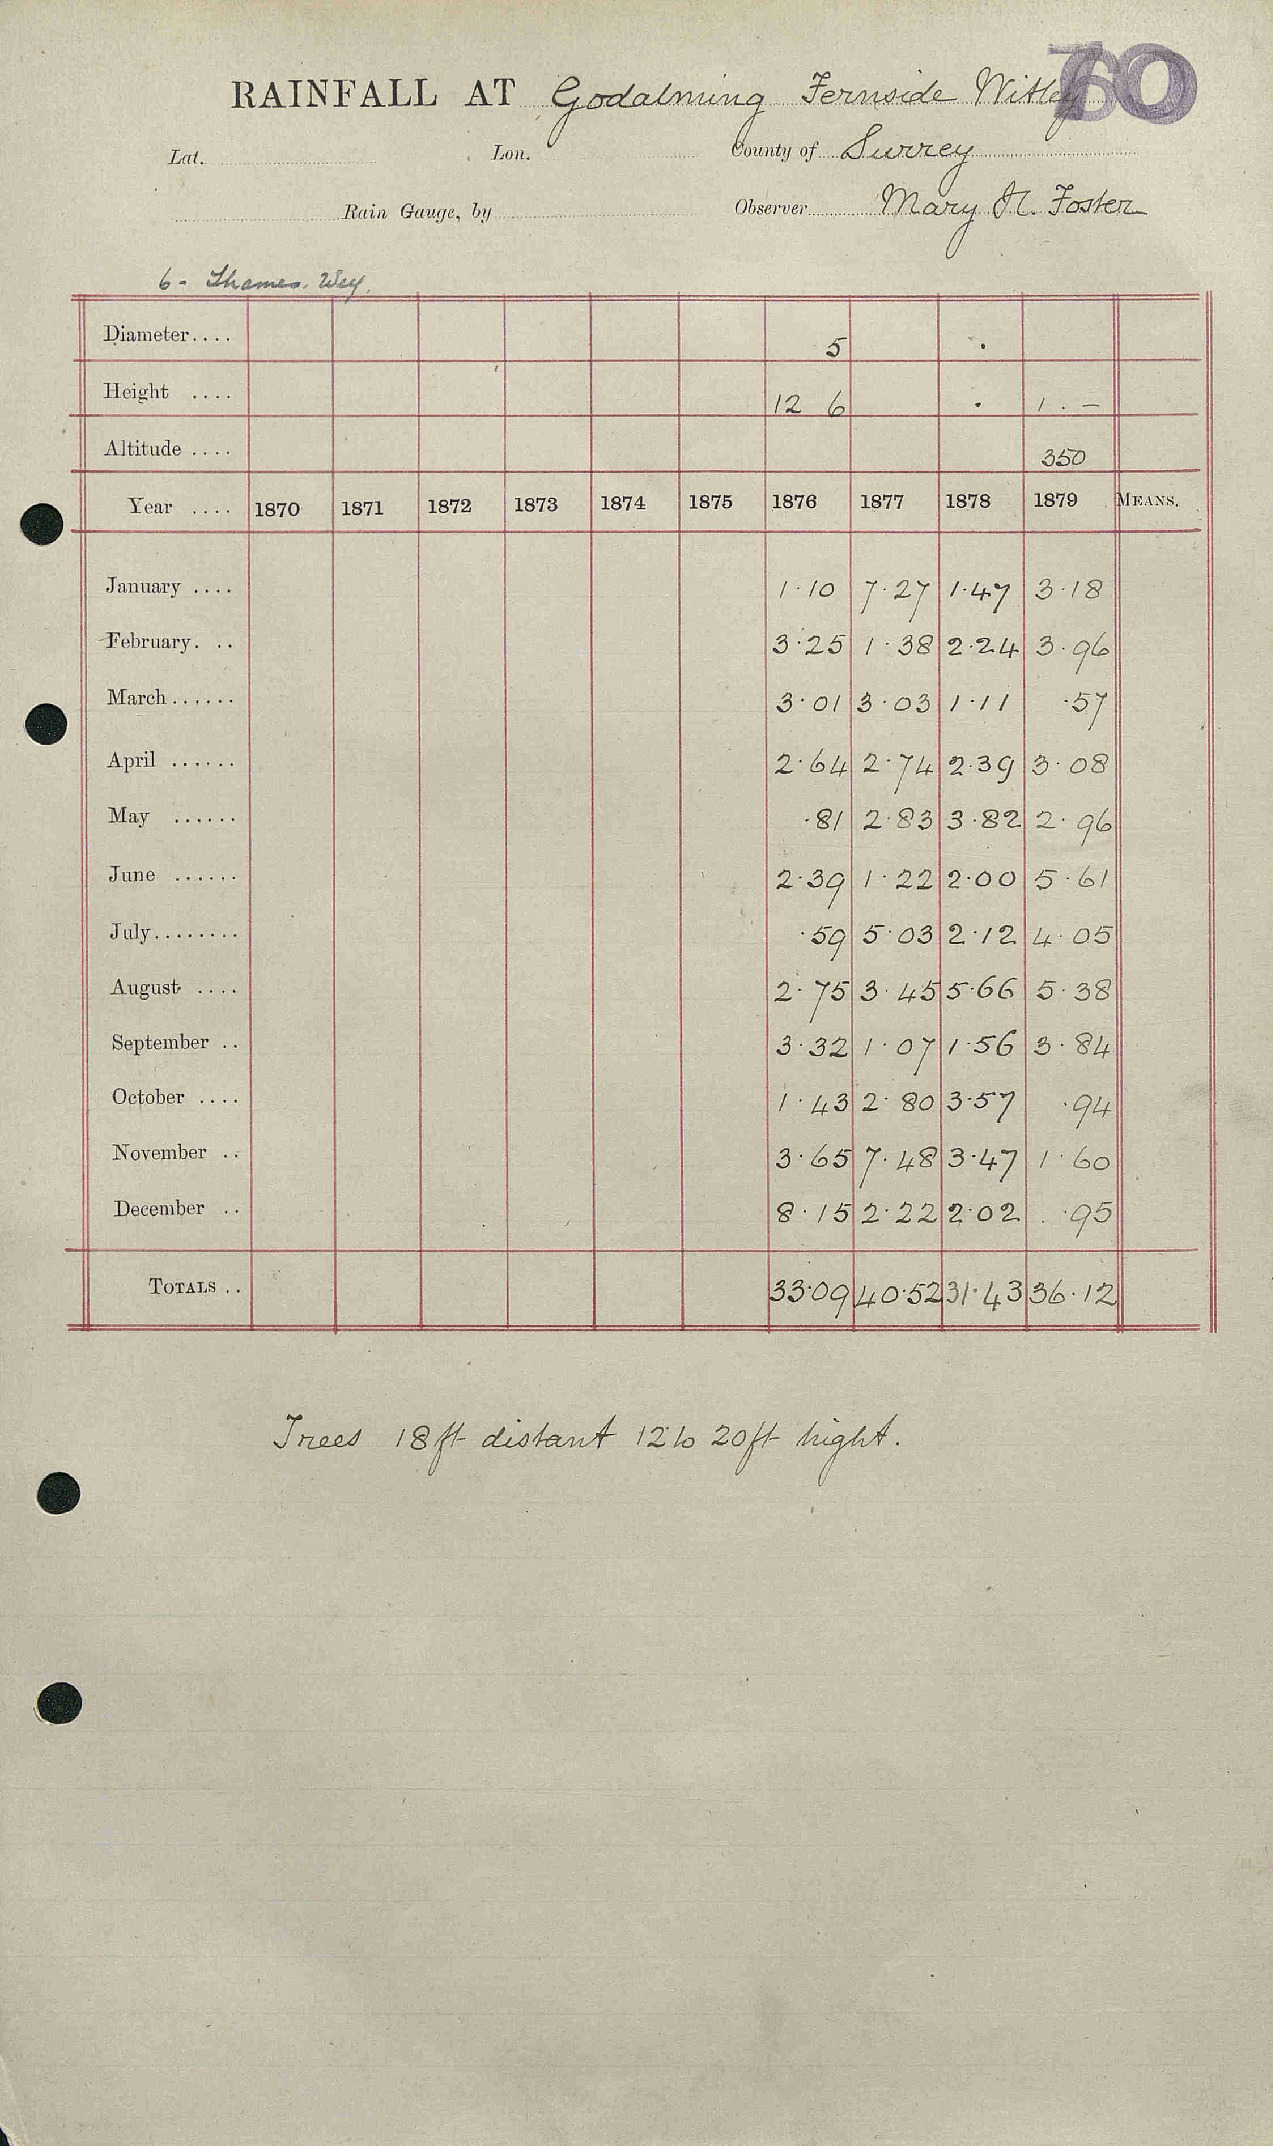 RAINFALL AT Godalming Fernside Witley
Lat. Lon. County of Surrey
Rain Gauge, by Observer Mary H. Foster
6 - Thames. Wey.
Diameter.... 5 .
Height .... 12 6 . 1 . —
Altitude .... 350
Year .... 1870 1871 1872 1873 1874 1875 1876 1877 1878 1879 MEANS.
January .... 1.10 7.27 1.47 3.18
February. .. 3.25 1.38 2.24 3.96
March...... 3.01 3.03 1.11 .57
April ...... 2.64 2.74 2.39 3.08
May ...... .81 2.83 3.82 2.96
June ...... 2.39 1.22 2.00 5.61
July........ .59 5.03 2.12 4.05
August .... 2.75 3.45 5.66 5.38
September .. 3.32 1.07 1.56 3.84
October .... 1.43 2.80 3.57 .94
November .. 3.65 7.48 3.47 1.60
December .. 8.15 2.22 2.02 .95
TOTALS .. 33.09 40.52 31.43 36.12
Trees 18 ft distant 12 to 20 ft hight.